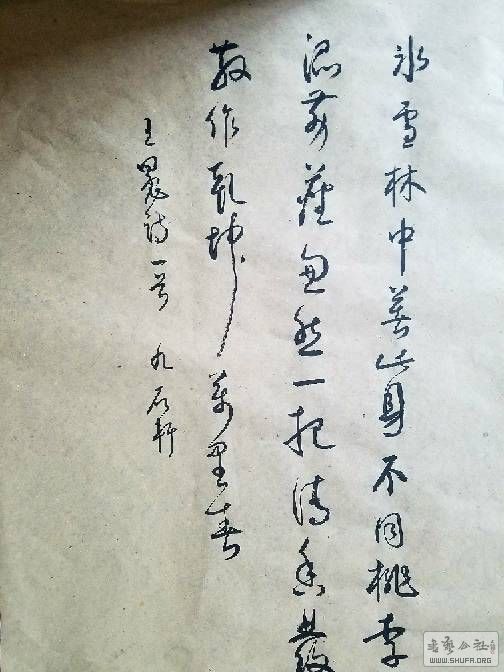 冰雪林中著此身不同桃李
混芳塵忽然一夜清香發
散作乾坤萬里春
王冕詩一首 九石軒
书艺公社
WWW.SHUFA.ORG